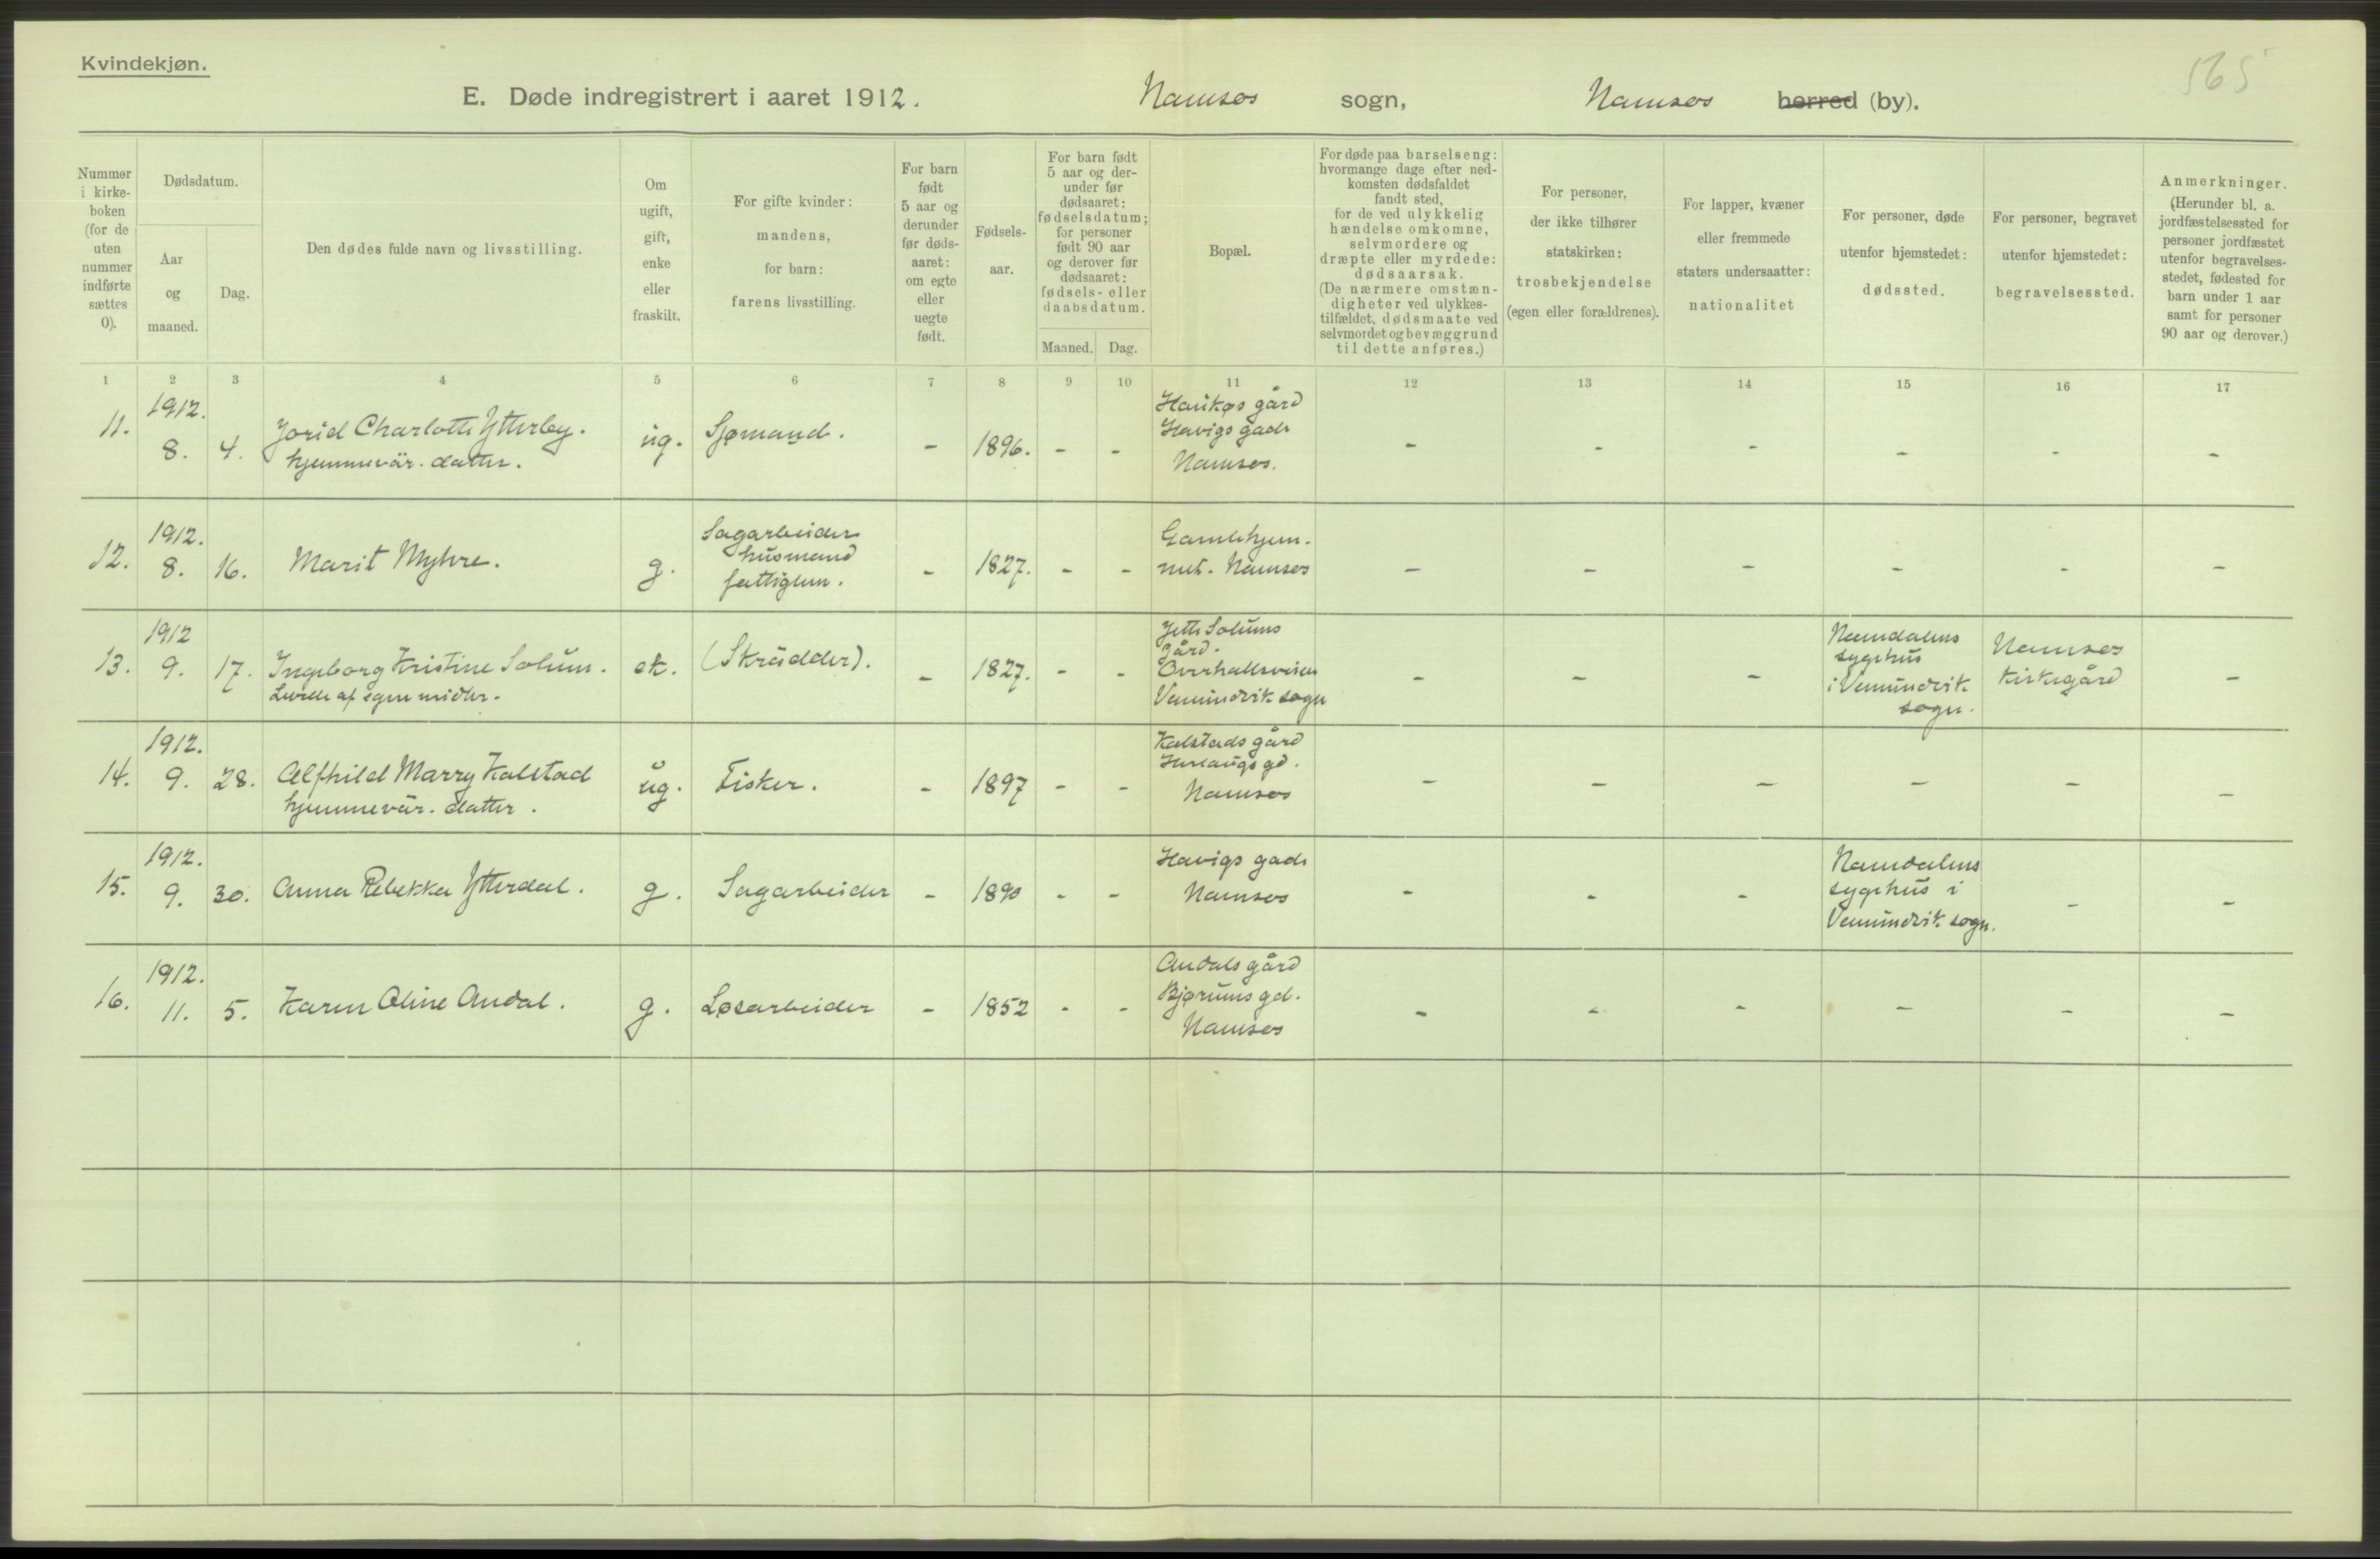 Kvindekjøn.
565
E. Døde indregistrert i aaret 1912. Namsos sogn, Namsos herred (by).
Nummer i kirke- boken (for de uten nummer indførte sættes 0).
Dødsdatum.
Aar og maaned.
Dag.
Den dødes fulde navn og livsstilling.
Om ugift, gift, enke eller fraskilt.
For gifte kvinder: mandens, for barn: farens livsstilling.
For barn født 5 aar og derunder før døds- aaret: om egte eller uegte født.
Fødsels- aar.
For barn født 5 aar og der- under før dødsaaret: fødselsdatum; for personer født 90 aar og derover før dødsaaret: fødsels- eller daabsdatum.
Maaned. Dag.
Bopæl.
For døde paa barselseng: hvormange dage efter ned- komsten dødsfaldet fandt sted, for de ved ulykkelig hændelse omkomne, selvmordere og dræpte eller myrdede: dødsaarsak. (De nærmere omstæn- digheter ved ulykkes- tilfældet, dødsmaate ved selvmordet og bevæggrund til dette anføres.)
For personer, der ikke tilhører statskirken: trosbekjendelse (egen eller forældrenes).
For lapper, kvæner eller fremmede staters undersaatter: nationalitet
For personer, døde utenfor hjemstedet: dødssted.
For personer, begravet utenfor hjemstedet: begravelsessted.
Anmerkninger. (Herunder bl. a. jordfæstelsessted for personer jordfæstet utenfor begravelses- stedet, fødested for barn under 1 aar samt for personer 90 aar og derover.)
1 2 3 4 5 6 7 8 9 10 11 12 13 14 15 16 17
11. 1912. 8. 4. Jorid Charlotte Ytterby. hjemmevär. datter. ug. Sjømand. - 1896. - - gård Havigs gade Namsos. - - - - - -
12. 1912. 8. 16. Marit Myhre. g. Sagarbeider husmand fattiglem. - 1827. - - Gamlehjem- met. Namsos - - - - - -
13. 1912 9. 17. Ingeborg Kristine Solum. Levede af egne midler. ek. (Skrädder). - 1827. - - Jette Solums gård. Overhallsveien Vemundvik sogn - - - Namdalens sygehus i Vemundvik sogn. Namsos kirkegård -
14. 1912. 9. 28. Alfhild Marry Kalstad hjemmevär. datter. ug. Fisker. - 1897 - - Kalstads gård Herlaugs gd. Namsos - - - - - -
15. 1912. 9. 30. Anna Rebekka Ytterdal. g. Sagarbeider - 1890 - - Havigs gade Namsos - - - Namdalens sygehus i Vemundvik sogn. - -
16. 1912. 11. 5. Karen Oline Andal. g. Løsarbeider - 1852 - - Andals gård Bjørums gd. Namsos - - - - - -